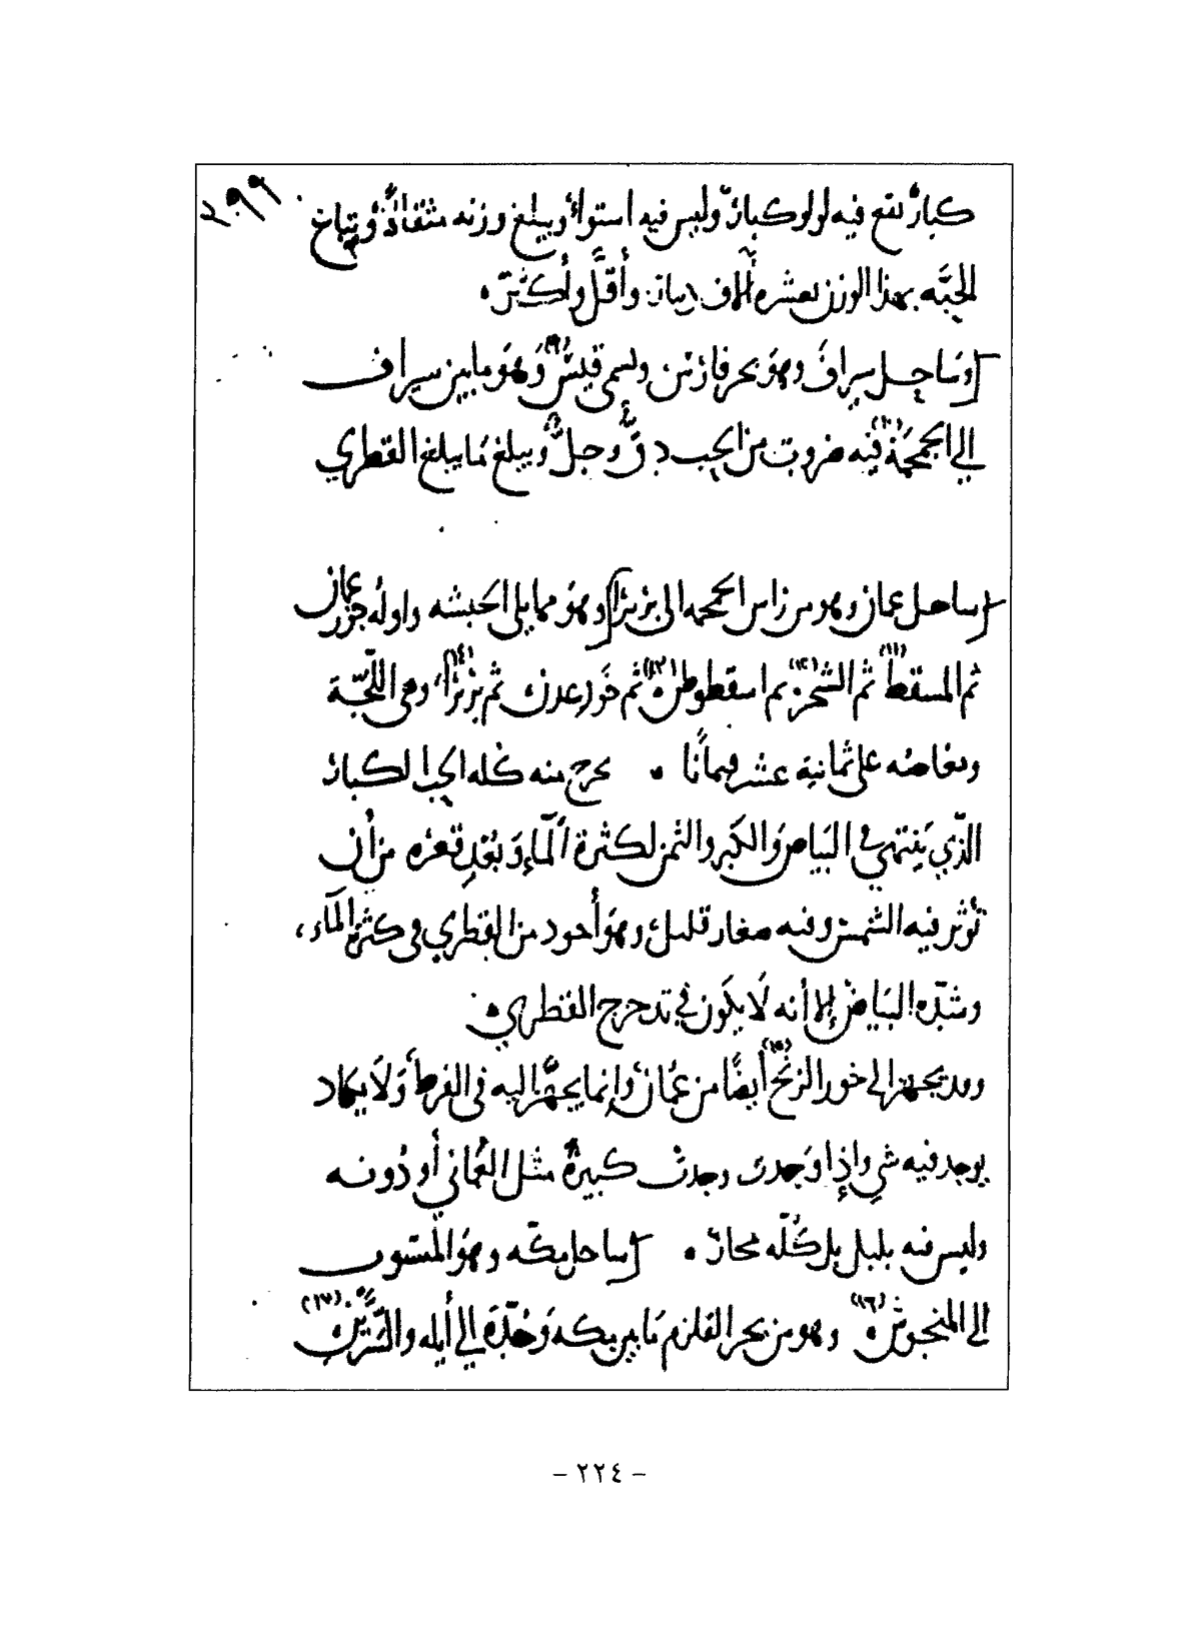 ٢٠٩٩
كبارٌ تقع فيه لولو كبارٌ وليس فيه استواءٌ ويبلغ وزنه مثقالٌ وتباع
الحبَّه بهذا الوزن بعشره ألاف دينار وأقلَّ وأكثرَ.
وسَاحِل سِيراف وهو بحر فارس ويسمى قيسٌ (٩) وَهوَ ما بين سيراف
إلي الجمحمَة (١٠) فيْه ضروب من الحب دقَّ وجلَّ ويبلغ مَا يبلغ القطري
ساحل عمان وهو من راس الجمحمه الى بربرا وهوَ مما يلى الحبشه واوله خور عمان
ثم المسقط (١١) ثم الشحر (١٢) ثم اسقطوطره (١٣) ثم خَور عدن ثم بربرا (١٤) وهى اللُّجَّة
ومغاصُه على ثمانية عشر قيمانًا . يخرج منه كله الحب الكبار
الّذي يَنتهي في البَياض وَالكبَر والثمن لكثرة الْمآء وَبُعْدِ قعره من أن
تُؤثر فيه الشمس وفيه صغار قليل وهوَ أجود من القطري في كثرة المآء،
وشدّه البَياض إلا أنه لَا يكَون في تدحرج القطري.
وقد يجهز إلى خور الزنج (١٥) أيضًا من عُمان وإنما يجهَّز إليه في الفرط وَلَا يكاد
يوجد فيه شي وإذا وَجدت وجدت كبيرةٌ مثل العُماني أو دُونه
وليس فيه بلبل بل كُلّه محار . ساحل مكّه وهوَ المنسوب
إلى المنجوش (١٦) وهو من بحر القلزم مَا بين مكه وَجُدّة إلي أيله والسِّرَّين (١٧)
- ٢٢٤ -